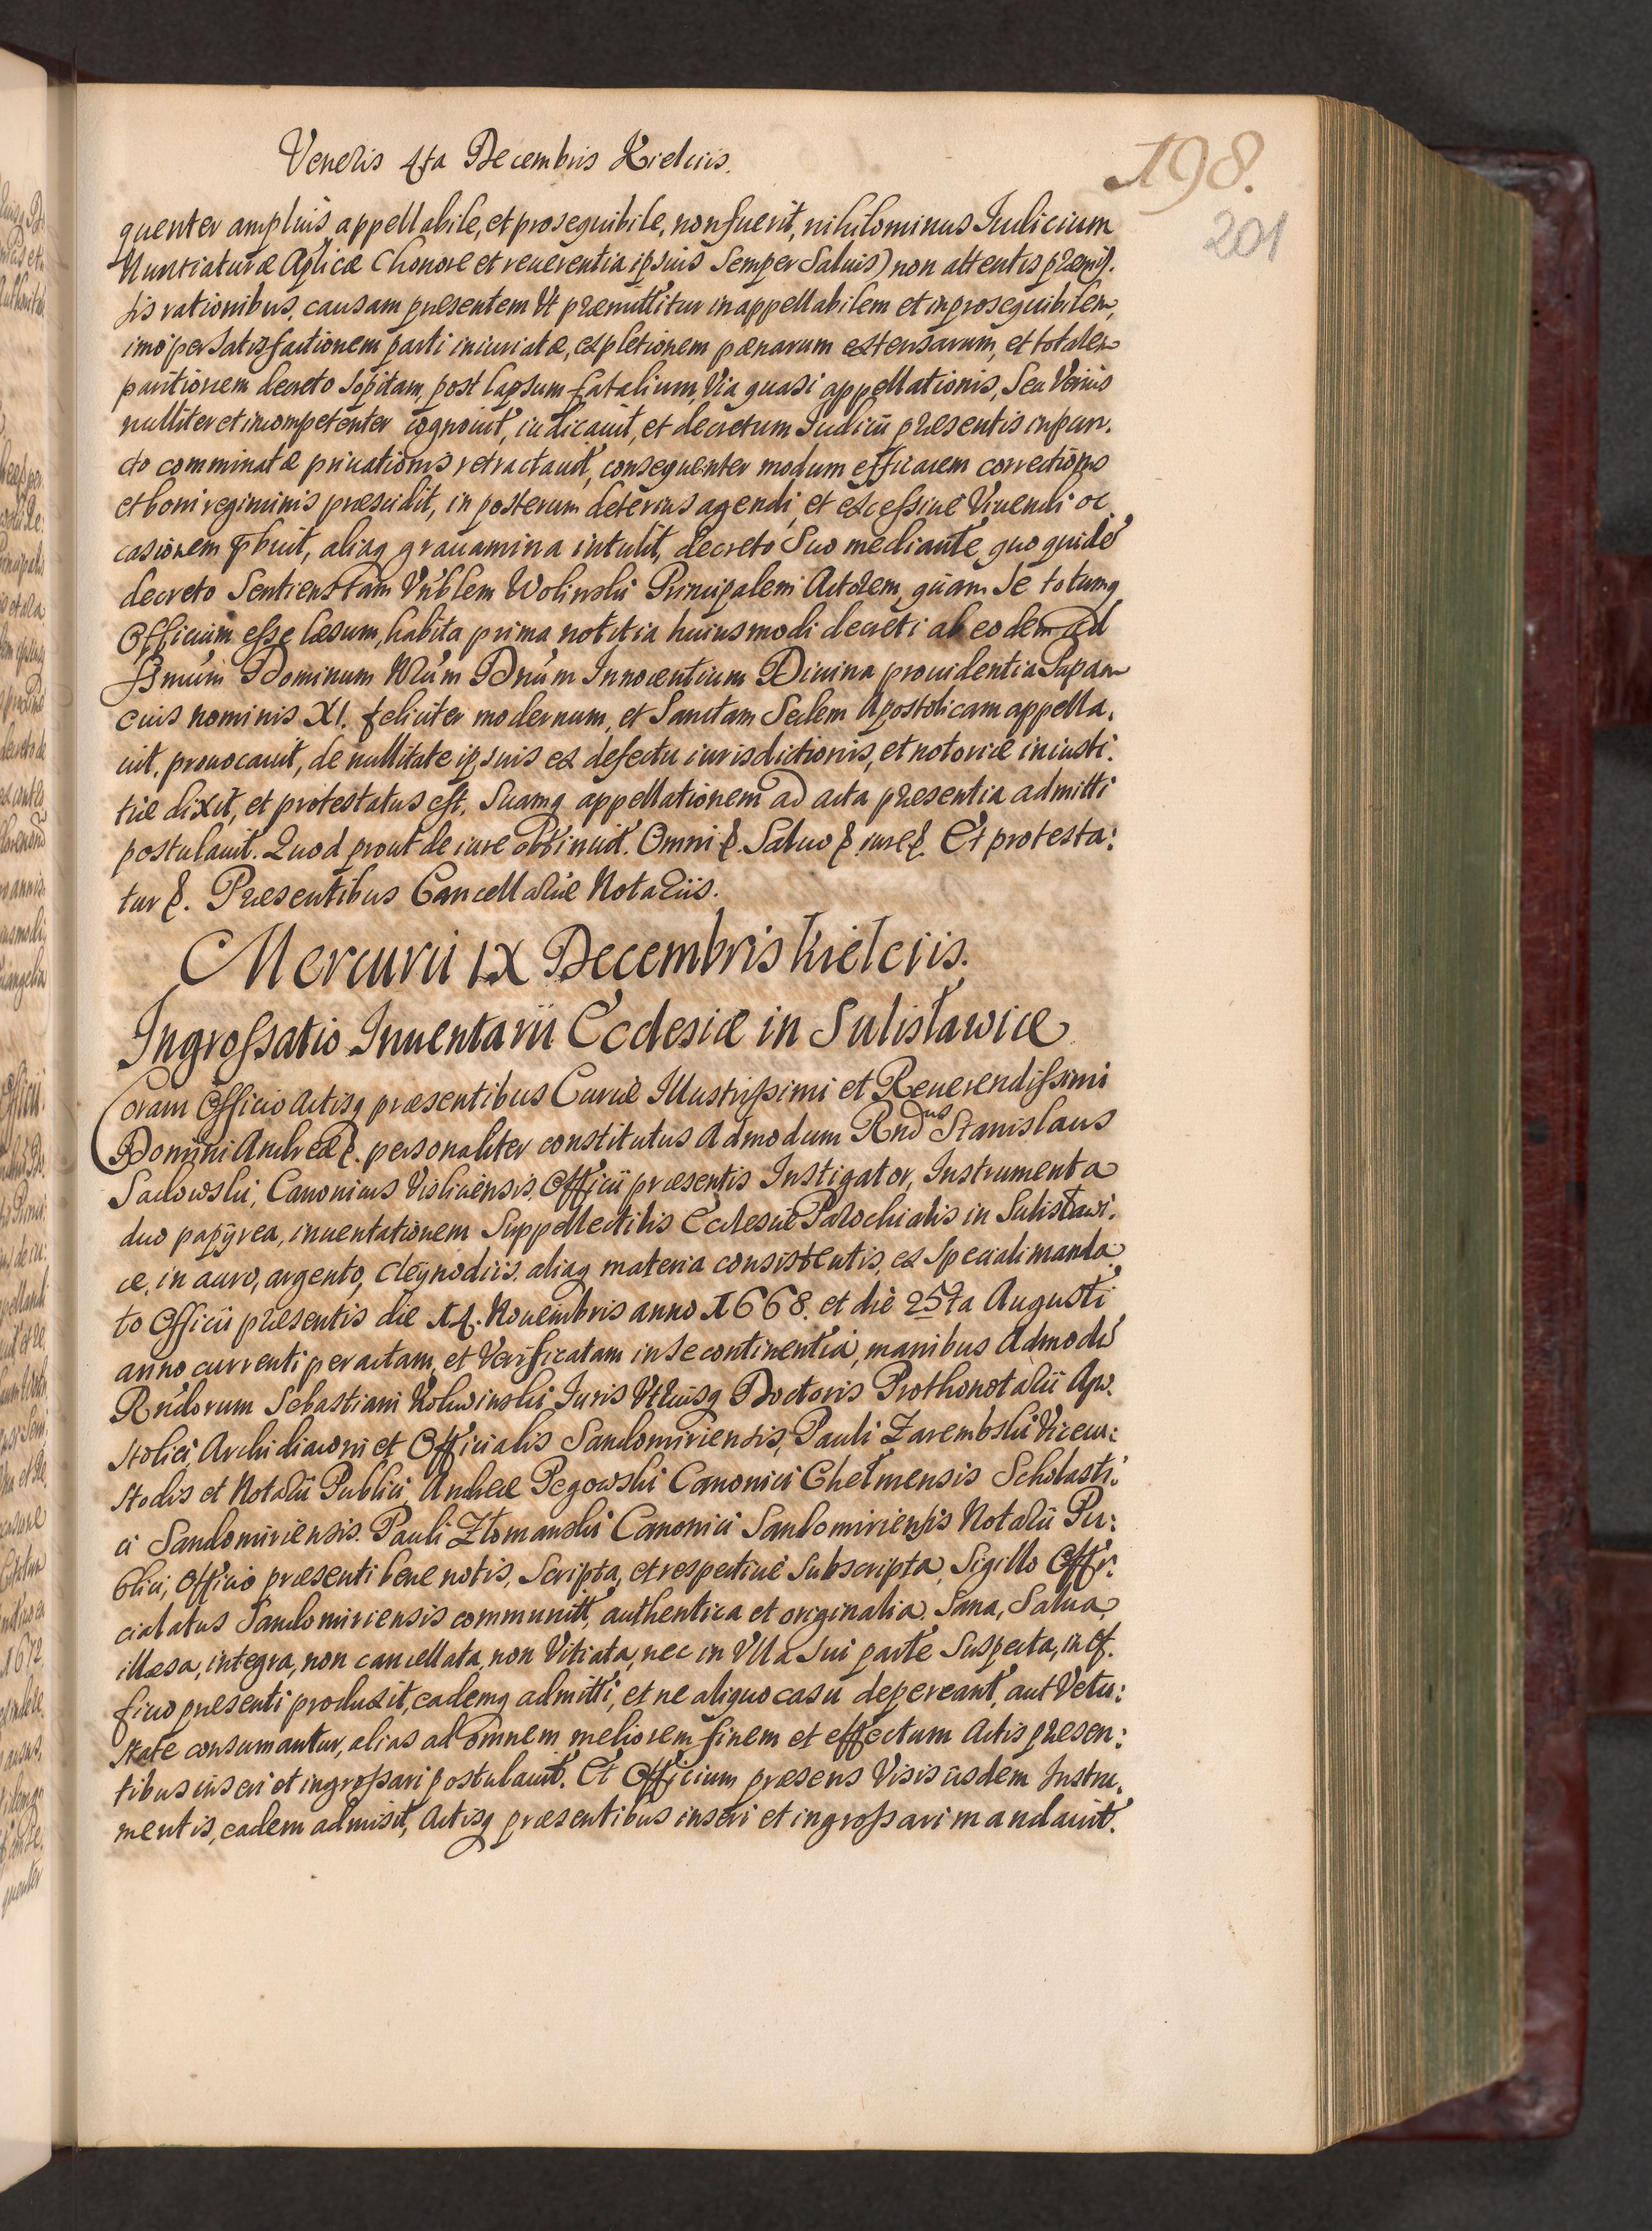 Veneris 4ta Decembris Kielciis.
198.
201
quenter amplius appellabile, et prosequibile, non fuerit, nihilominus Iudicium
Nuntiaturæ Aplicæ (honore et reuerentia ipsius Semper Saluis) non attentis præmis.
sis rationibus, causam præsentem Vt præmittitur inappellabilem et inprosequibilem,
imo per Satisfactionem parti iniuriatæ, expletionem pœnarum extensarum, et totalem
paritionem decreto Sopitam, post lapsum fatalium, Via quasi appellationis, Seu Verius
nulliter et incompetenter cognouit, iudicauit, et decretum Iudicii præsentis in pun.
cto comminatæ priuationis retractauit, consequenter modum efficacem correctionis
et boni regiminis præscidit, in posterum deterius agendi, et excessiue Viuendi oc
casionem pbuit, aliaq grauamina intulit, decreto Suo mediante, quo quidē
decreto Sentiens tam Vnblem Wolinski Principalem Actorem, quam Se totumq
Officium esse læsum, habita prima notitia huiusmodi decreti ab eodem ad
SSmum Dominum Nrum Dnum Innocentium Diuina prouidentia Papam
cuis nominis XI. feliciter modernum, et Sanctam Sedem Apostolicam appella.
uit, prouocauit, de nullitate ipsuis ex defectu iurisdictionis, et notoriæ iniusti:
tiæ dixit, et protestatus est, Suamq appellationem ad acta præsentia admitti
postulauit. Quod prout de iure obtinuit. Omni &. Saluo &. iure &. Et protesta:
tur &. Præsentibus Cancellariæ Notariis.
Mercurii IX Decembris Kielciis.
Ingrossatio Inuentarii Ecclesiæ in Sulisławice
Coram Officio Actisq præsentibus Curiæ Illustrissimi et Reuerendissimi
Domini Andreæ &. personaliter constitutus Admodum Rndus Stanislaus
Sadowski, Canonicus Visliciensis, Officii præsentis Instigator, Instrumenta
duo papÿrea, inuentationem Suppellectilis Ecclesiæ Parochialis in Sulisławi.
ce, in auro, argento, cleÿnodiis. aliaq materia consistentis, ex Speciali manda:
to Officii præsentis die 14. Nouembris anno 1668. et die 25ta Augusti
anno currenti peractam, et Verificatam in Se continentia, manibus Admodū
Rndorum Sebastiani Kokwinski Iuris Vtriusq Doctoris Prothonotarii Apo.
stolici, Archidiaconi et Officialis Sandomiriensis, Pauli Zarembski Vicecu:
stodis et Notarii Publici, Andreæ Pegowski Canonici Chełmensis Scholasti:
ci Sandomiriensis. Pauli Złomanski Canonici Sandomiriensis Notarii Pu:
blici, Officio præsenti bene notis, Scripta, et respectiue Subscripta, Sigillo Offi:
cialatus Sandomiriensis communitt, authentica et originalia. Sana, Salua,
illæsa, integra, non cancellata, non Vitiata, nec in Vlla Sui parte Suspecta, in Of.
ficio præsenti produxit, eademq admitti, et ne aliquo casu depereant, aut Vetu:
state consumantur, alias ad omnem meliorem finem et effectum Actis præsen:
tibus inseri et ingrossari postulauit. Et Officium præsens Visis iisdem Instru.
mentis, eadem admisit, Actisq præsentibus inseri et ingrossari mandauit.